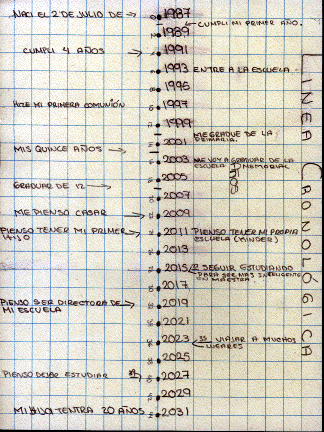 NACI EL 2 DE JULIO DE → 1987
CUMPLI MI PRIMER AÑO.
1989
CUMPLI 4 AÑOS → 1991
1993 ENTRE A LA ESCUELA
1995
HICE MI PRIMERA COMUNIÓN 1997
1999
ME GRADUE DE LA
PRIMARIA.
2001
MIS QUINCE AÑOS →
2003 ME VOY A GRADUAR DE LA
ESCUELA MEMORIAL
2005
GRADUAR DE 12 →
2007
ME PIENSO CASAR → 2009
PIENSO TENER MI PRIMER → 2011 PIENSO TENER MI PROPIA
HIJO ESCUELA (MINDER)
2013
2015 SEGUIR ESTUDIANDO
PARA SER MAS INTELIGENTE
EN MAESTRA
2017
PIENSO SER DIRECTORA DE → 2019
MI ESCUELA
2021
2023 35 VIAJAR A MUCHOS
LUGARES
2025
PIENSO DEJAR ESTUDIAR 2027
2029
MI HIJO TENTRA 20 AÑOS → 2031
LINEA CRONOLÓGICA